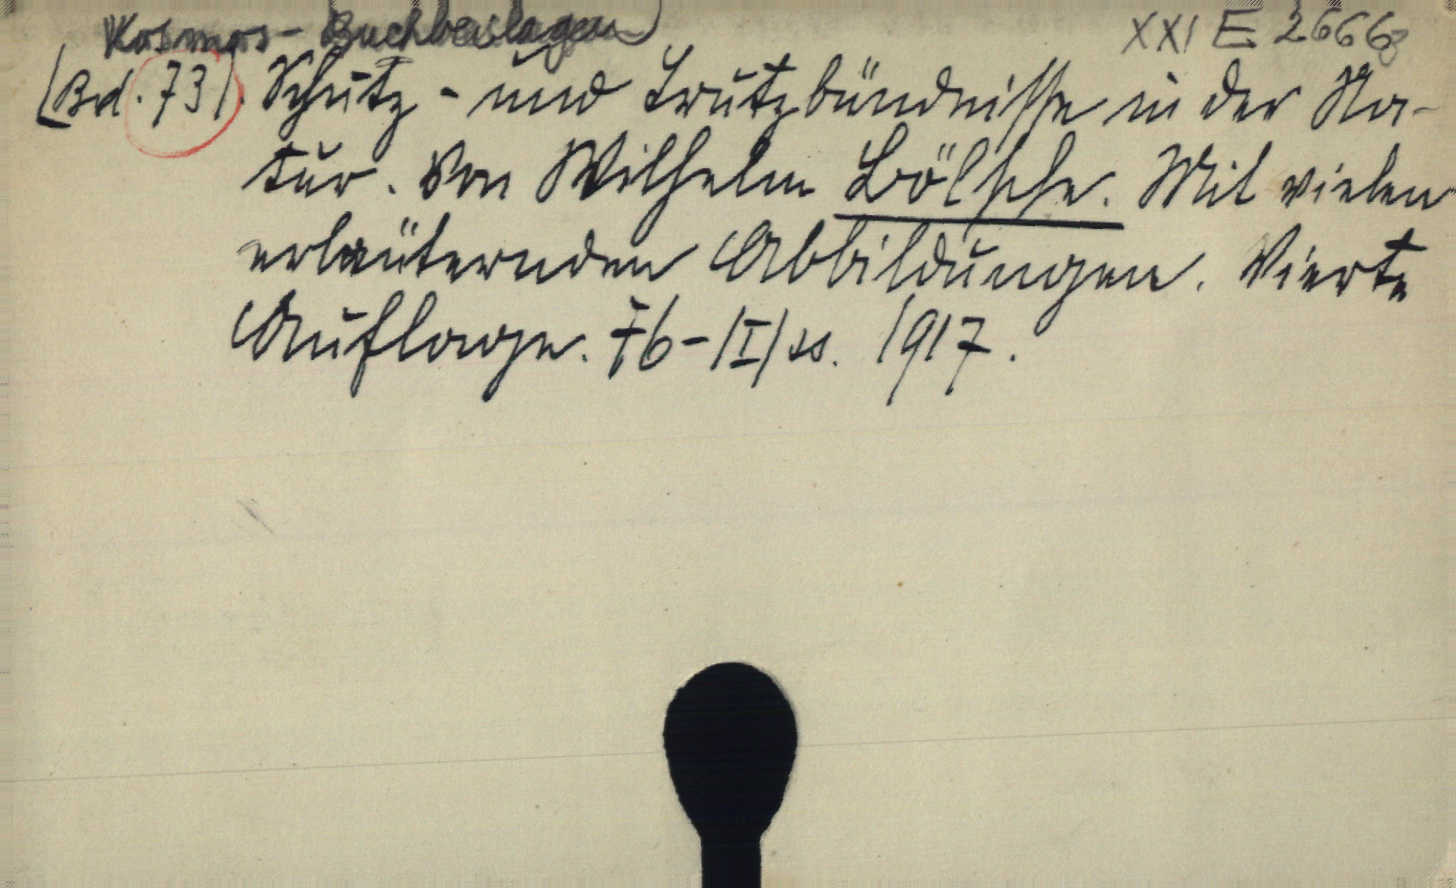 Kosmos-Buchbeilagen
XXI E 2666
[Bd. 73]. Schutz- und Trutzbündnisse in der Na-
tur. Von Wilhelm Bölsche. Mit vielen
erläuternden Abbildungen. Vierte
Auflage. 76-|I| ss. 1917.